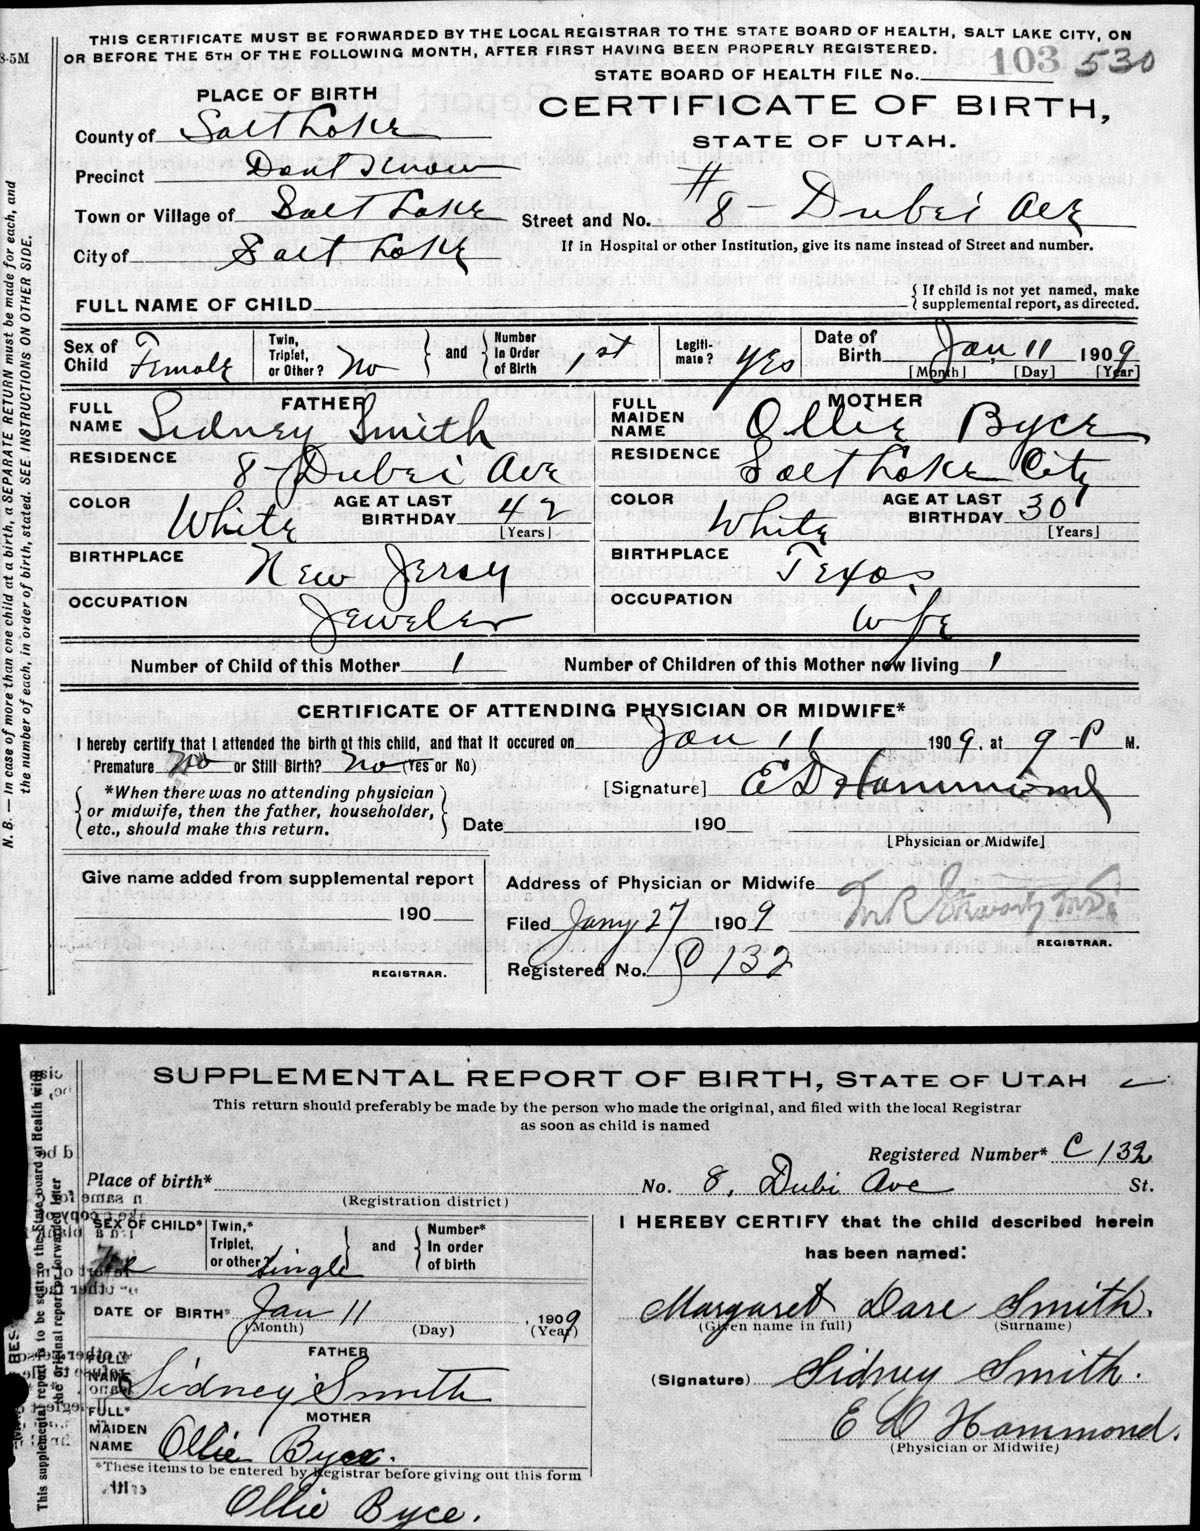 THIS CERTIFICATE MUST BE FORWARDED BY THE LOCAL REGISTRAR TO THE STATE BOARD OF HEALTH, SALT LAKE CITY, ON
OR BEFORE THE 5TH OF THE FOLLOWING MONTH, AFTER FIRST HAVING BEEN PROPERLY REGISTERED.
8-5M
STATE BOARD OF HEALTH FILE No. 103 530
PLACE OF BIRTH
CERTIFICATE OF BIRTH,
STATE OF UTAH.
County of Salt Lake
Precinct Dont Know
Town or Village of Salt Lake
Street and No. #8- Dubei Ave
City of Salt Lake
If in Hospital or other Institution, give its name instead of Street and number.
FULL NAME OF CHILD
{ If child is not yet named, make supplemental report, as directed.
Sex of Child Female
Twin, Triplet, or Other? No } and { Number in Order of Birth 1st
Legiti-mate? Yes
Date of Birth Jan, 11 1909
[Month] [Day] [Year]
FATHER
FULL NAME Sidney Smith
RESIDENCE 8- Dubei Ave
COLOR White AGE AT LAST BIRTHDAY 42 [Years]
BIRTHPLACE New Jersy
OCCUPATION Jeweler
MOTHER
FULL MAIDEN NAME Ollie Byce
RESIDENCE Salt Lake City
COLOR White AGE AT LAST BIRTHDAY 30 [Years]
BIRTHPLACE Texas
OCCUPATION Wife
Number of Child of this Mother 1 Number of Children of this Mother now living 1
CERTIFICATE OF ATTENDING PHYSICIAN OR MIDWIFE*
I hereby certify that I attended the birth of this child, and that it occured on Jan 11 1909, at 9-P M.
Premature No or Still Birth? No (Yes or No)
[Signature] E D Hammond
{ *When there was no attending physician or midwife, then the father, householder, etc., should make this return. }
Date 190
[Physician or Midwife]
Give name added from supplemental report
190
REGISTRAR.
Address of Physician or Midwife
Filed Jany 27 1909
REGISTRAR.
Registered No. 132
N. B. — In case of more than one child at a birth, a SEPARATE RETURN must be made for each, and
the number of each, in order of birth, stated. SEE INSTRUCTIONS ON OTHER SIDE.
SUPPLEMENTAL REPORT OF BIRTH, STATE OF UTAH
This return should preferably be made by the person who made the original, and filed with the local Registrar
as soon as child is named
Registered Number* C 132
Place of birth* No. 8, Dubi Ave St.
(Registration district)
SEX OF CHILD*
Twin,* Triplet, or other? Single } and { Number* In order of birth
DATE OF BIRTH* Jan 11, 1909
(Month) (Day) (Year)
FATHER
FULL* NAME Sidney Smith
MOTHER
FULL* MAIDEN NAME Ollie Byce.
*These items to be entered by Registrar before giving out this form
Ollie Byce.
I HEREBY CERTIFY that the child described herein
has been named:
Margaret Dare Smith.
(Given name in full) (Surname)
(Signature) Sidney Smith.
E D Hammond.
(Physician or Midwife)
This supplemental report is to be sent to the State Board of Health with
the original report or forwarded later